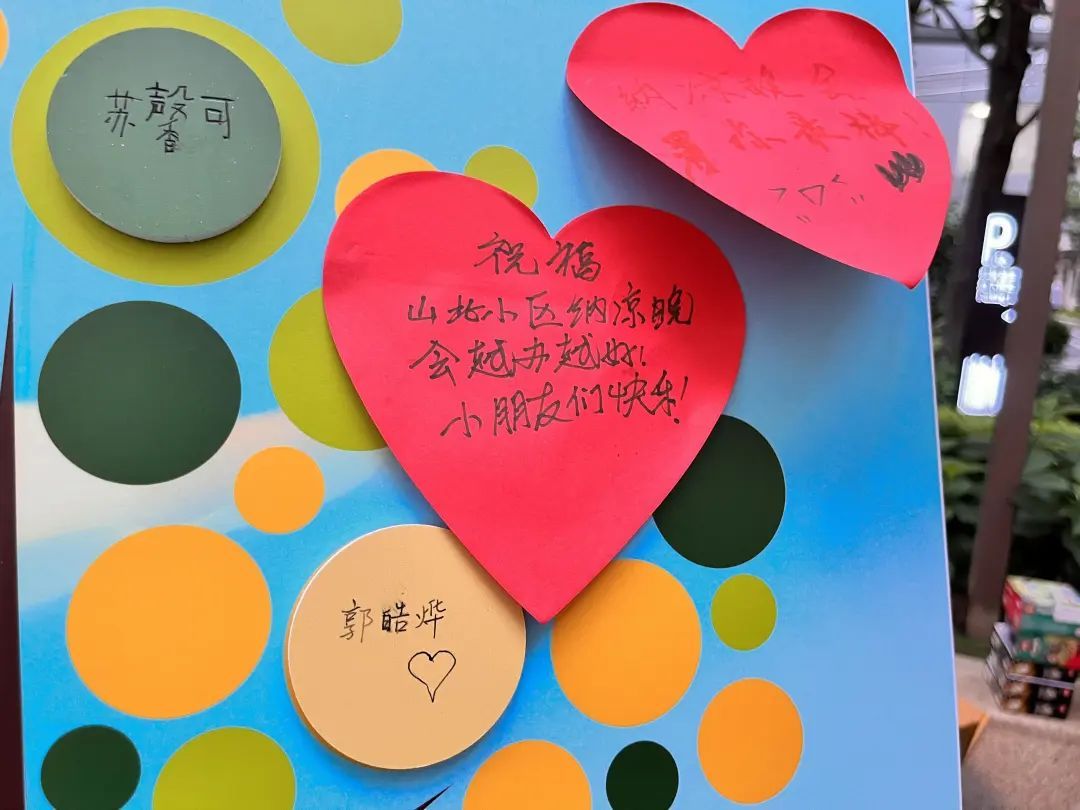 苏馨可
纳凉晚会
暑你最棒!
祝福
山北小区纳凉晚
会越办越好!
小朋友们快乐!
郭皓烨
P